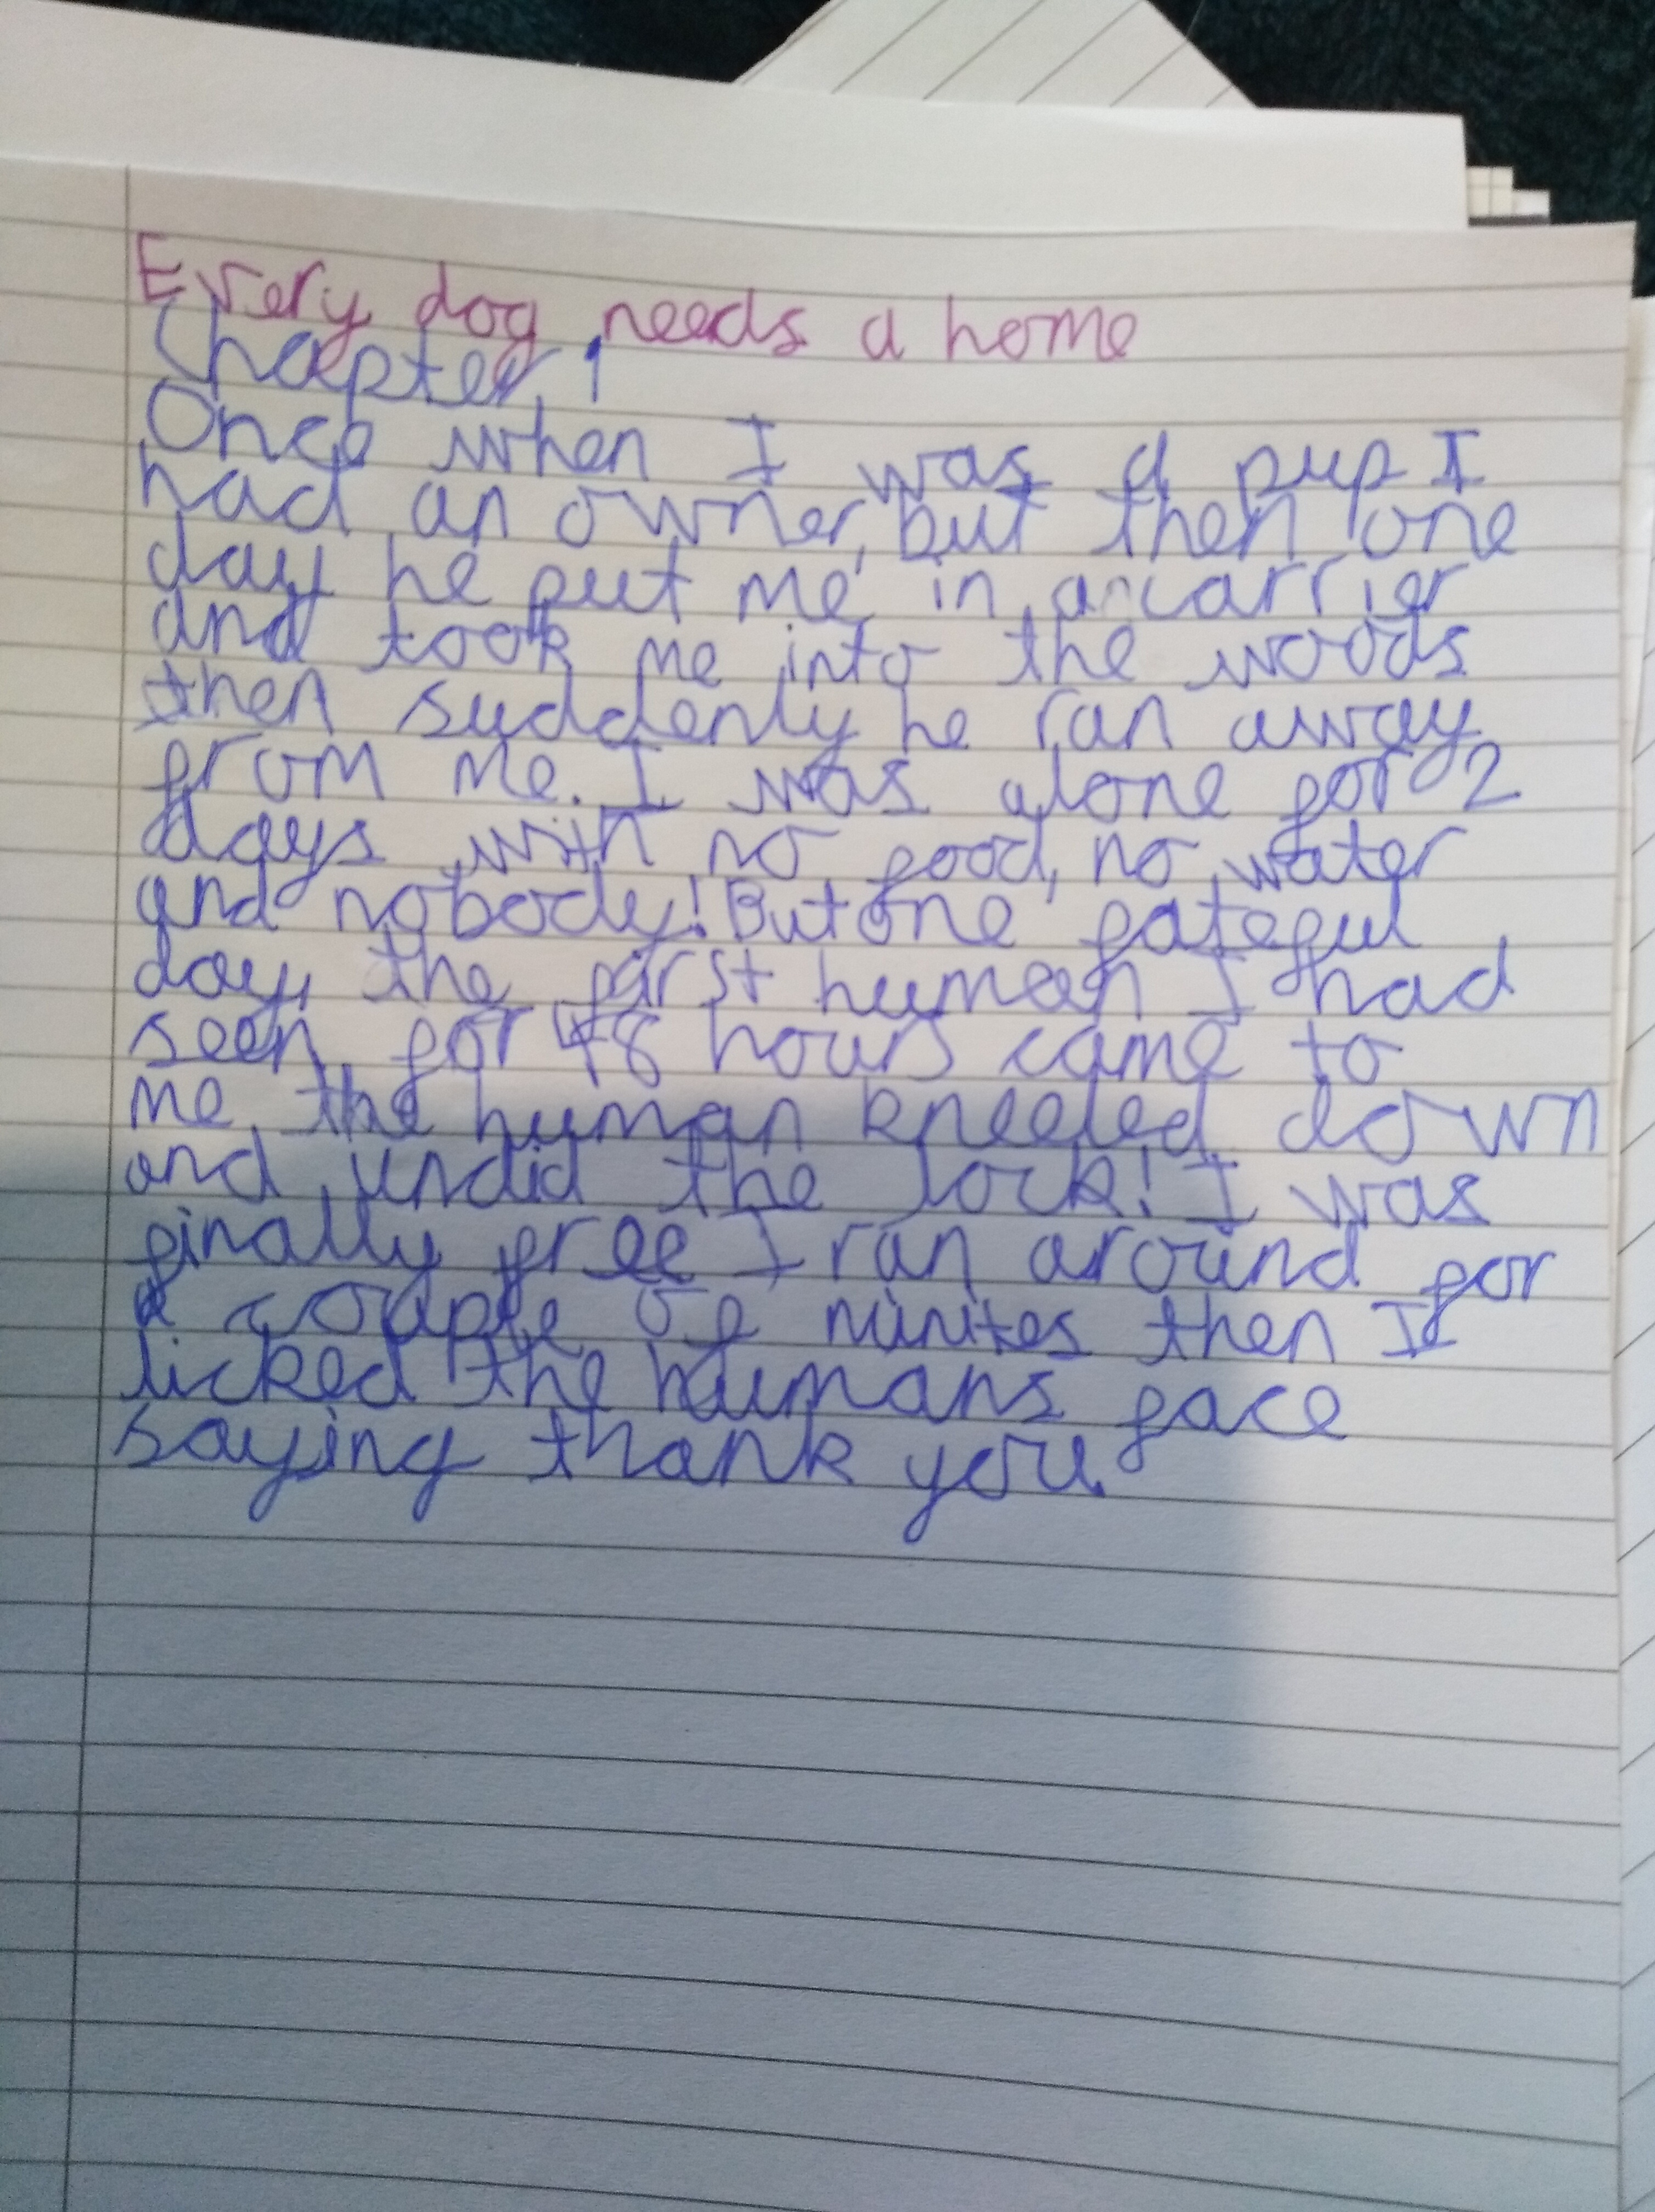 Every dog needs a home
Chapter 1
Once when I was a pup I
had an owner, but then one
day he put me in a carrier
and took me into the woods
then suddenly he ran away
from me. I was alone for 2
days with no food, no water
and nobody! But one fateful
day, the first human I had
seen for 48 hours came to
me the human kneeled down
and undid the lock! I was
finally free I ran around for
a couple of minites then I
licked the humans face
saying thank you.